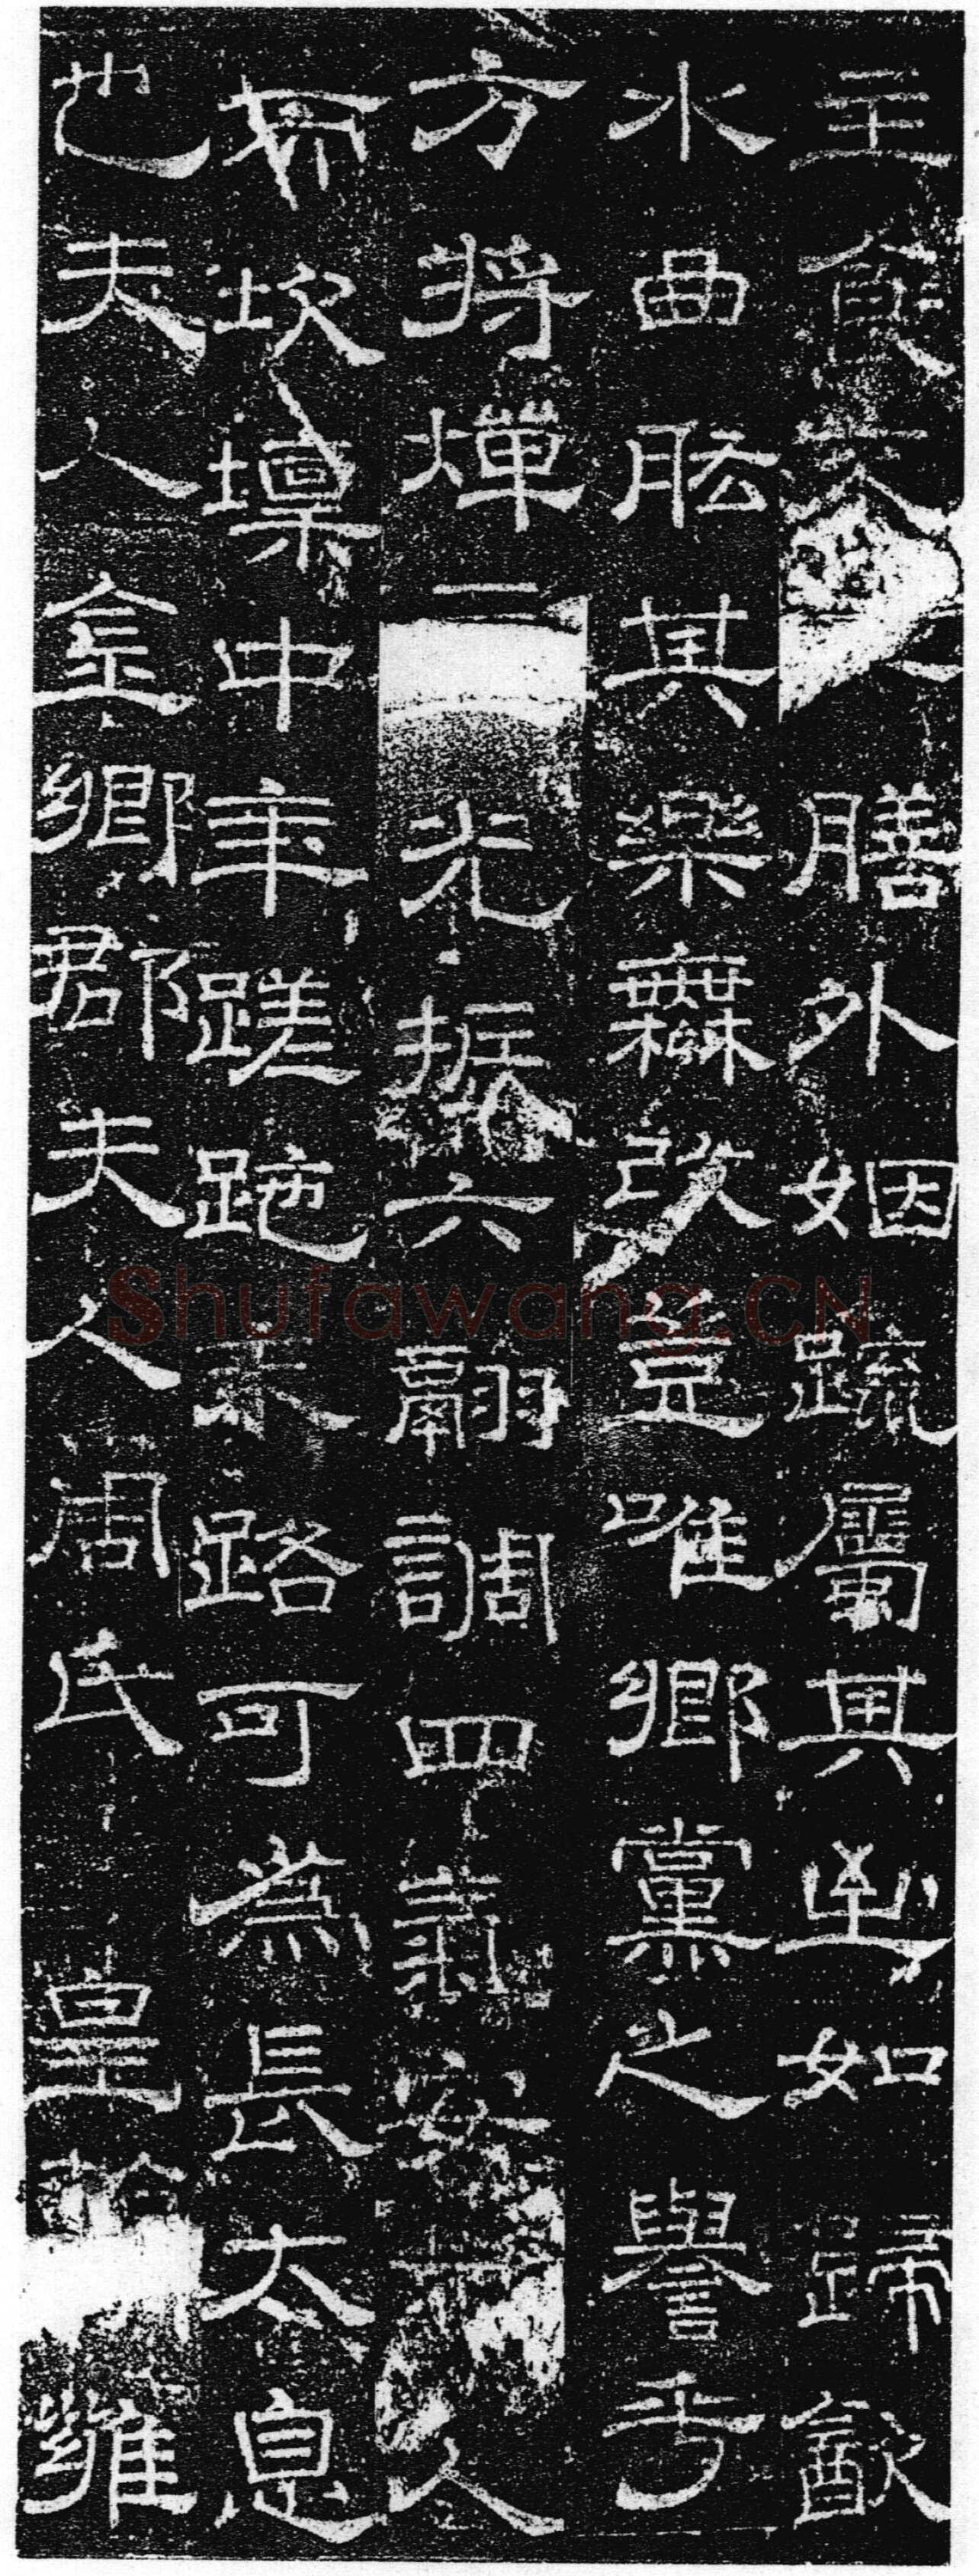 主食之膳外姻疏屬其至如歸歠
水曲肱其樂無改豈唯鄉黨之譽乎
方將燀三光振六翮調四氣安人
而坎壈中年蹉跎末路可為長太息
也夫人金鄉郡夫人周氏 皇雍
Shufawang.CN